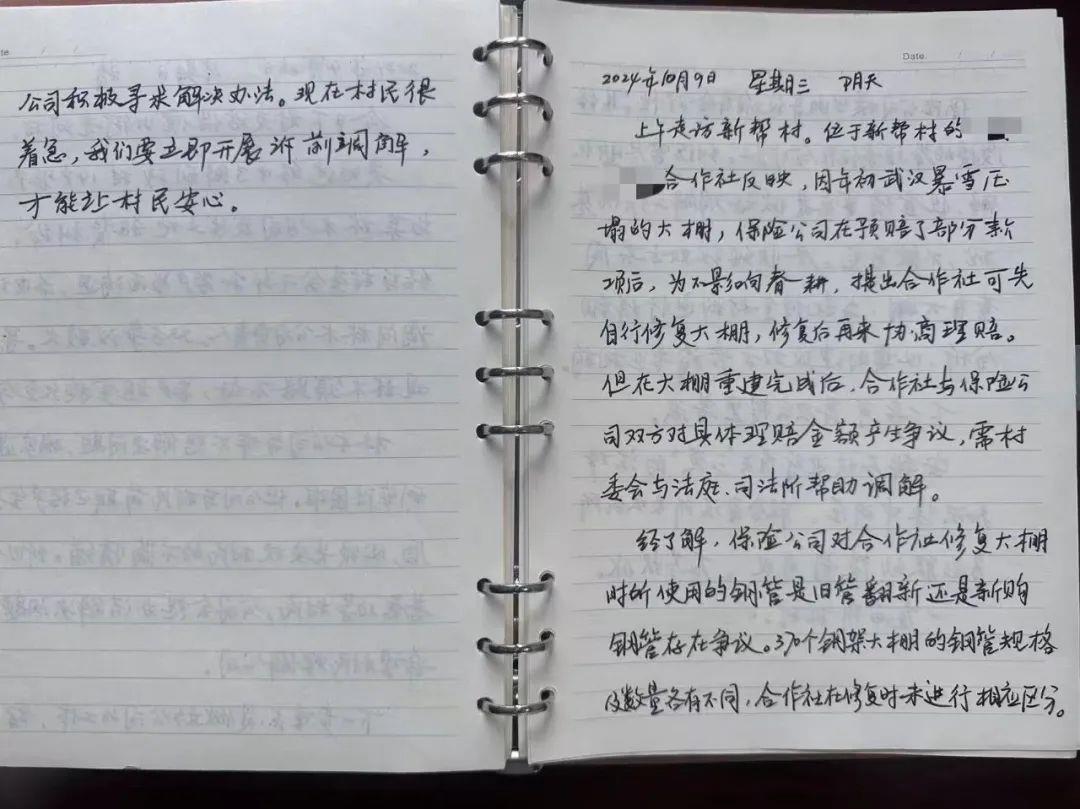 公司积极寻求解决办法。现在村民很
着急，我们要立即开展诉前调解，
才能让村民安心。
Date.
2024年10月9日 星期三 阴天
上午走访新帮村。位于新帮村的
合作社反映，因年初武汉暴雪压
塌的大棚，保险公司在预赔了部分款
项后，为不影响春耕，提出合作社可先
自行修复大棚，修复后再来协商理赔。
但在大棚重建完成后，合作社与保险公
司双方对具体理赔金额产生争议，需村
委会与法庭、司法所帮助调解。
经了解，保险公司对合作社修复大棚
时所使用的钢管是旧管翻新还是新购
钢管存在争议。370个钢架大棚的钢管规格
及数量各有不同，合作社在修复时未进行相应区分。